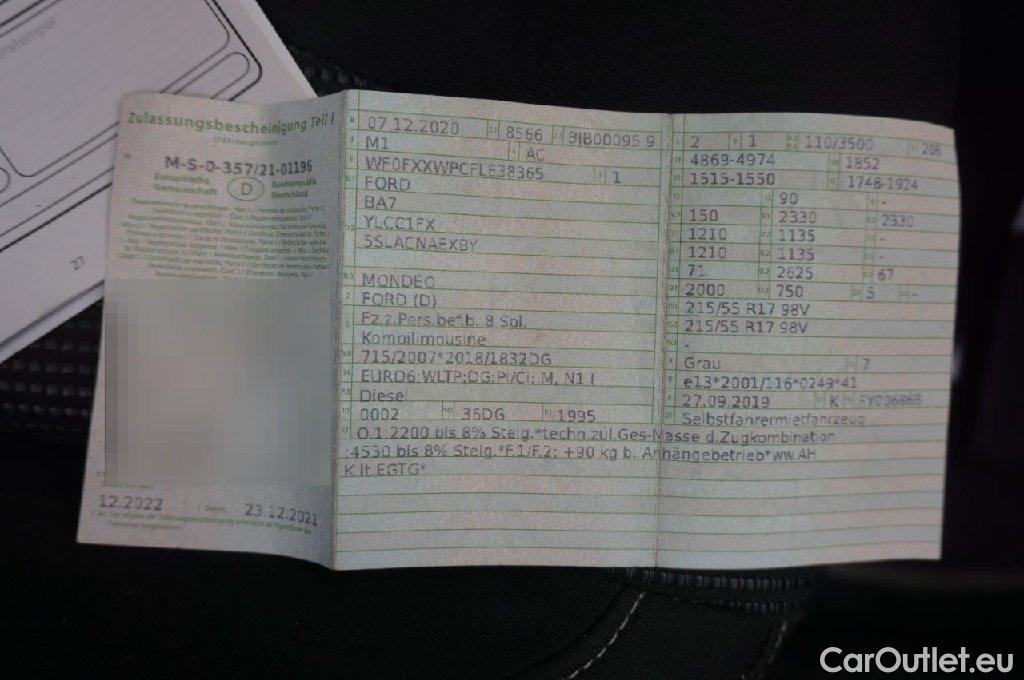 27
Zulassungsbescheinigung Teil I
(Fahrzeugschein)
M-S-0-357/21-01196
Europäische
Gemeinschaft
D
Bundesrepublik
Deutschland
12.2022
23.12.2021
07.12.2020 8566 BJB00095 9
M1 AC
WF0FXXWPCFLE38365 1
FORD
BA7
YLCC1FX
5SLACNAEXBY
MONDEO
FORD (D)
Fz.z.Pers.bef.b. 8 Spl.
Kombilimousine
715/2007*2018/1832DG
EURO6;WLTP;DG;PI/CI; M, N1 I
Diesel
0002 36DG 1995
O.1:2200 bis 8% Steig.*techn.zul.Ges-Masse d.Zugkombination
4530 bis 8% Steig.*F.1/F.2: +90 kg b. Anhängebetrieb*ww.AH
K lt.EGTG*
2 1 110/3500 206
4869-4974 1852
1515-1550 1748-1924
90 -
150 2330 2330
1210 1135 -
1210 1135 -
71 2625 67
2000 750 5 -
215/55 R17 98V
215/55 R17 98V
-
Grau 7
e13*2001/116*0249*41
27.09.2019 K FY006868
Selbstfahrermietfahrzeug
CarOutlet.eu